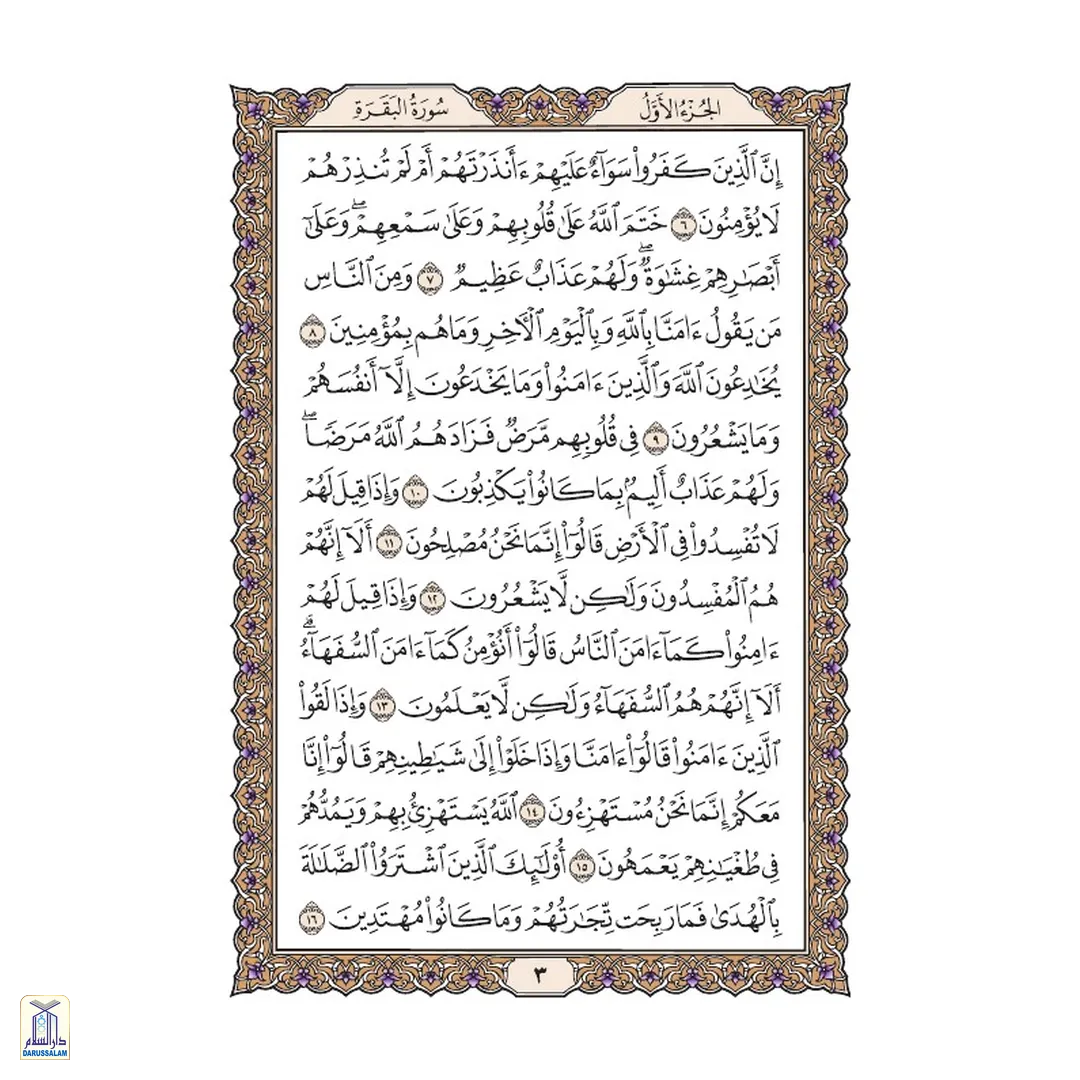 الجُزْءُ الأَوَّلُ
سُورَةُ البَقَرَةِ
إِنَّ ٱلَّذِينَ كَفَرُوا۟ سَوَآءٌ عَلَيْهِمْ ءَأَنذَرْتَهُمْ أَمْ لَمْ تُنذِرْهُمْ
لَا يُؤْمِنُونَ ٦ خَتَمَ ٱللَّهُ عَلَىٰ قُلُوبِهِمْ وَعَلَىٰ سَمْعِهِمْ ۖ وَعَلَىٰٓ
أَبْصَـٰرِهِمْ غِشَـٰوَةٌ ۖ وَلَهُمْ عَذَابٌ عَظِيمٌ ٧ وَمِنَ ٱلنَّاسِ
مَن يَقُولُ ءَامَنَّا بِٱللَّهِ وَبِٱلْيَوْمِ ٱلْـَٔاخِرِ وَمَا هُم بِمُؤْمِنِينَ ٨
يُخَـٰدِعُونَ ٱللَّهَ وَٱلَّذِينَ ءَامَنُوا۟ وَمَا يَخْدَعُونَ إِلَّآ أَنفُسَهُمْ
وَمَا يَشْعُرُونَ ٩ فِى قُلُوبِهِم مَّرَضٌ فَزَادَهُمُ ٱللَّهُ مَرَضًا ۖ
وَلَهُمْ عَذَابٌ أَلِيمٌۢ بِمَا كَانُوا۟ يَكْذِبُونَ ١٠ وَإِذَا قِيلَ لَهُمْ
لَا تُفْسِدُوا۟ فِى ٱلْأَرْضِ قَالُوٓا۟ إِنَّمَا نَحْنُ مُصْلِحُونَ ١١ أَلَآ إِنَّهُمْ
هُمُ ٱلْمُفْسِدُونَ وَلَـٰكِن لَّا يَشْعُرُونَ ١٢ وَإِذَا قِيلَ لَهُمْ
ءَامِنُوا۟ كَمَآ ءَامَنَ ٱلنَّاسُ قَالُوٓا۟ أَنُؤْمِنُ كَمَآ ءَامَنَ ٱلسُّفَهَآءُ ۗ
أَلَآ إِنَّهُمْ هُمُ ٱلسُّفَهَآءُ وَلَـٰكِن لَّا يَعْلَمُونَ ١٣ وَإِذَا لَقُوا۟
ٱلَّذِينَ ءَامَنُوا۟ قَالُوٓا۟ ءَامَنَّا وَإِذَا خَلَوْا۟ إِلَىٰ شَيَـٰطِينِهِمْ قَالُوٓا۟ إِنَّا
مَعَكُمْ إِنَّمَا نَحْنُ مُسْتَهْزِءُونَ ١٤ ٱللَّهُ يَسْتَهْزِئُ بِهِمْ وَيَمُدُّهُمْ
فِى طُغْيَـٰنِهِمْ يَعْمَهُونَ ١٥ أُو۟لَـٰٓئِكَ ٱلَّذِينَ ٱشْتَرَوُا۟ ٱلضَّلَـٰلَةَ
بِٱلْهُدَىٰ فَمَا رَبِحَت تِّجَـٰرَتُهُمْ وَمَا كَانُوا۟ مُهْتَدِينَ ١٦
٣
دار السلام
DARUSSALAM